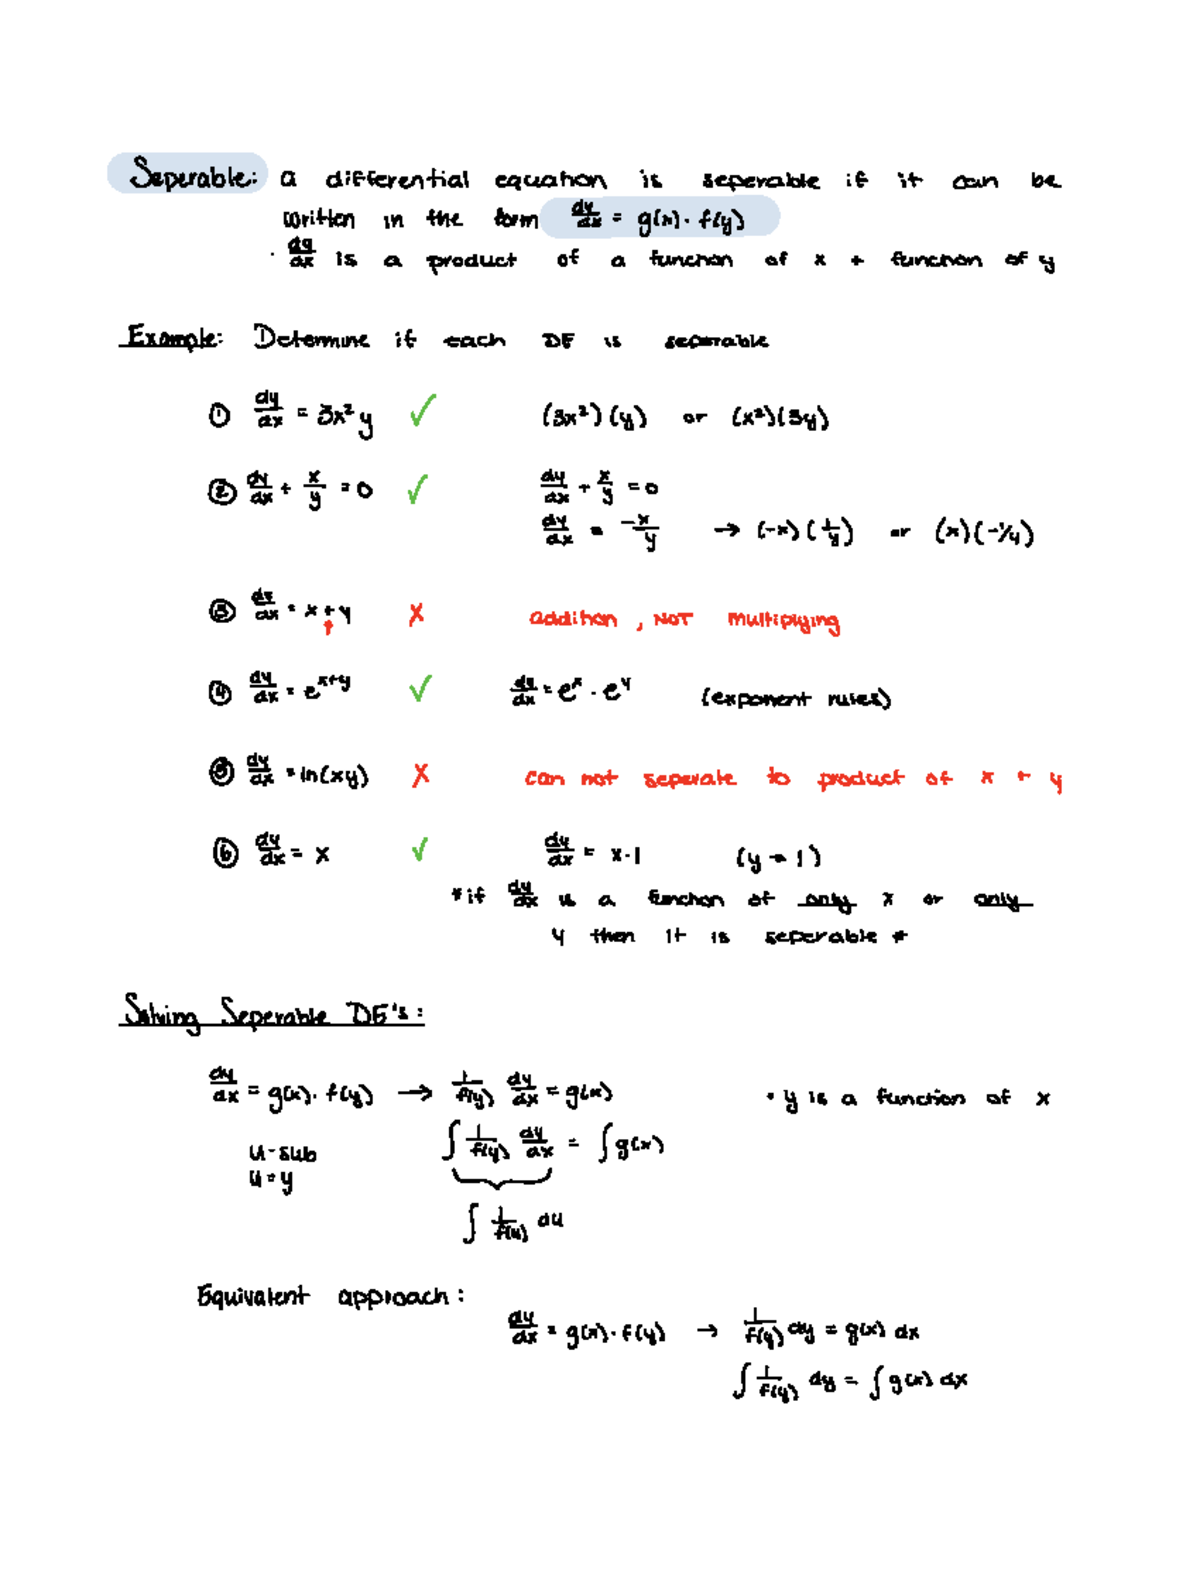 Seperable: a differential equation is seperable if it can be
written in the form dy/dx = g(x) · f(y)
· dy/dx is a product of a function of x + function of y
Example: Determine if each DE is seperable
① dy/dx = 3x² y ✓ (3x²)(y) or (x²)(3y)
② dy/dx + x/y = 0 ✓ dy/dx + x/y = 0
dy/dx = -x/y → (-x)(1/y) or (x)(-1/y)
③ dy/dx = x + y X addition, NOT multiplying
↑
④ dy/dx = e^(x+y) ✓ dy/dx = e^x · e^y (exponent rules)
⑤ dy/dx = ln(xy) X can not seperate to product of x + y
⑥ dy/dx = x ✓ dy/dx = x·1 (y → 1)
*if dy/dx is a function of only x or only
y then it is seperable *
Solving Seperable DE's:
dy/dx = g(x) · f(y) → 1/f(y) dy/dx = g(x) · y is a function of x
u-sub ∫ 1/f(y) dy/dx = ∫ g(x)
u = y
∫ 1/f(u) du
Equivalent approach:
dy/dx = g(x) · f(y) → 1/f(y) dy = g(x) dx
∫ 1/f(y) dy = ∫ g(x) dx